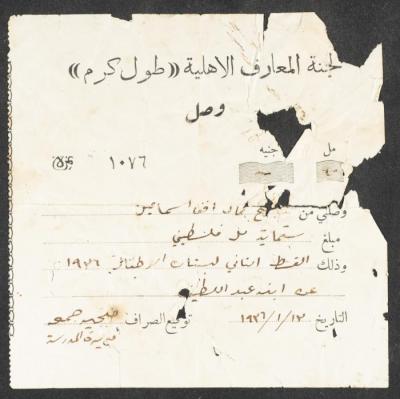 لجنة المعارف الاهلية «طول كرم»
وصل
مل جنيه
١٠٧٦
وصلني من جمال افندي اسماعيل
مبلغ ستماية مل فلسطيني
وذلك القسط الثاني لبستان الاطفال ١٩٣٦
عن ابنه عبد اللطيف
التاريخ ١٩٣٦/١/١٣ توقيع الصراف
مديرة المدرسة